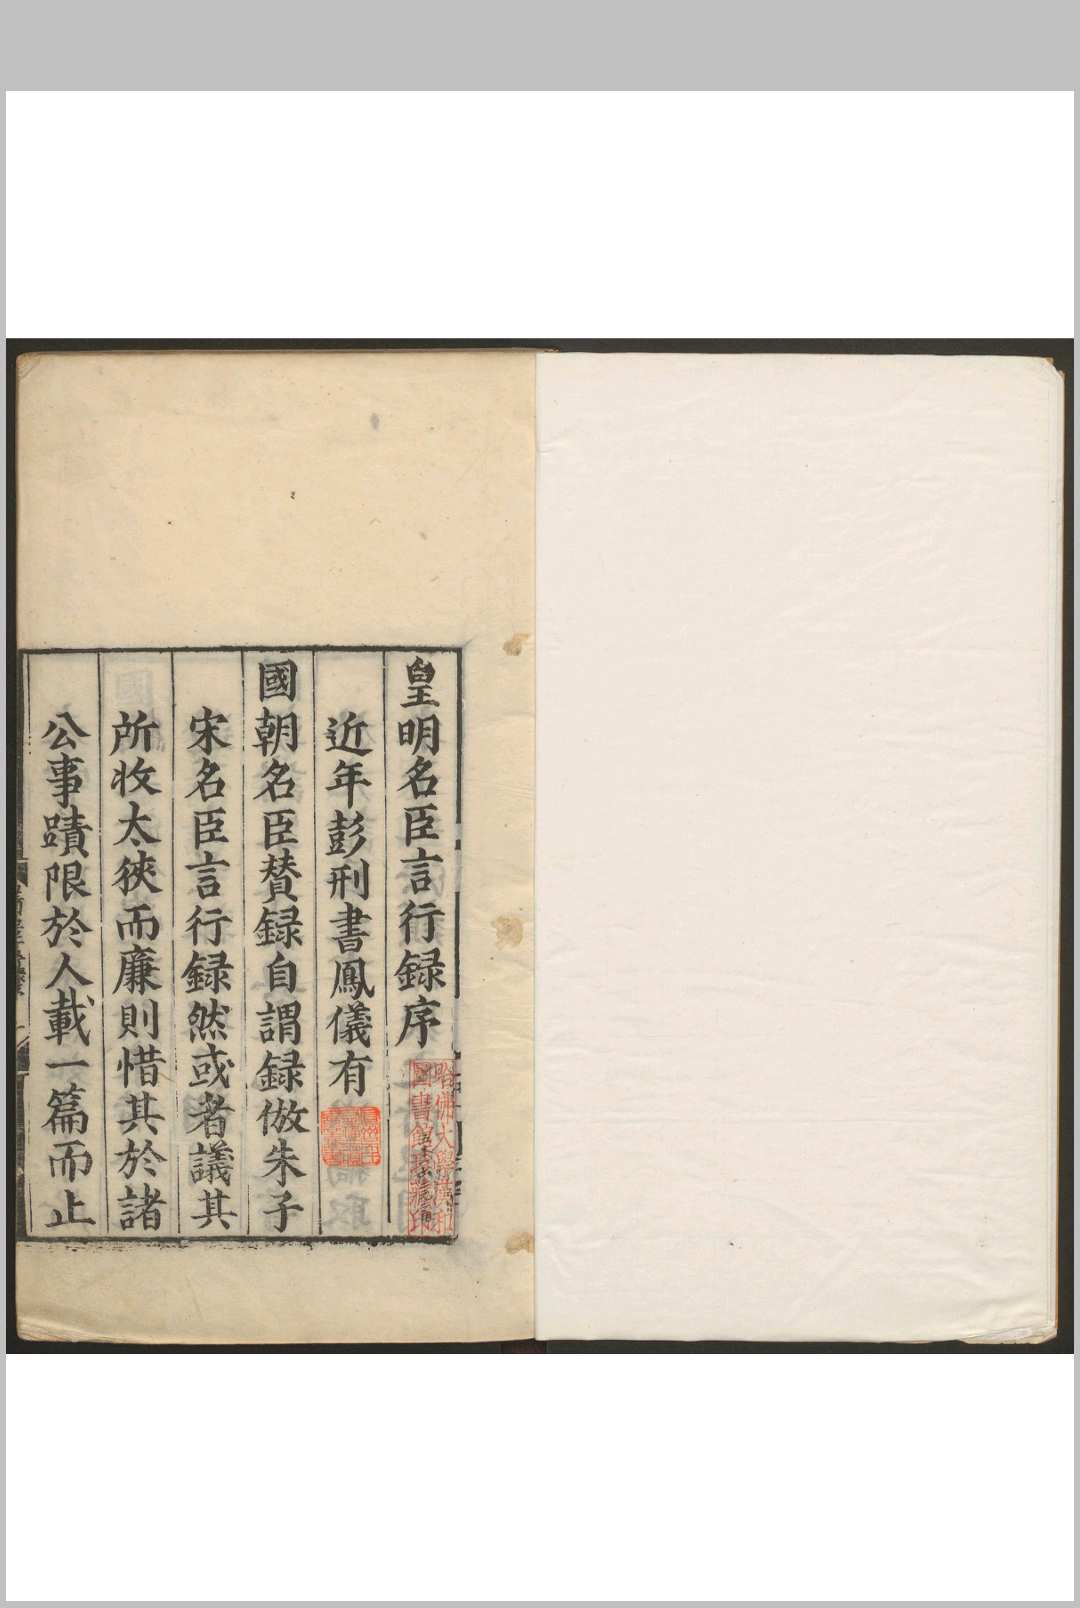 皇明名臣言行録序
近年彭刑書鳳儀有
國朝名臣賛録自謂録倣朱子
宋名臣言行録然或者議其
所收太狹而廉則惜其於諸
公事蹟限於人載一篇而止
哈佛大學漢和
圖書館珍藏印